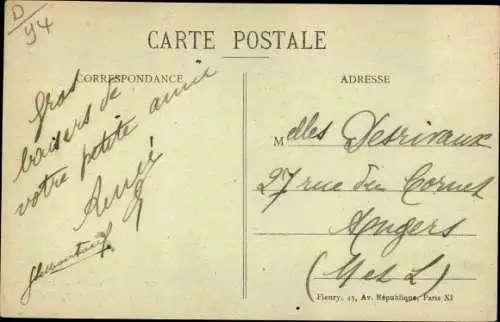 D
94
CARTE POSTALE
CORRESPONDANCE
Gros
baisers de
votre petite amie
Renée
ADRESSE
Melles Desrivaux
27 rue du Cornet
Angers
(M et L)
Fleury, 45, Av. République, Paris XI